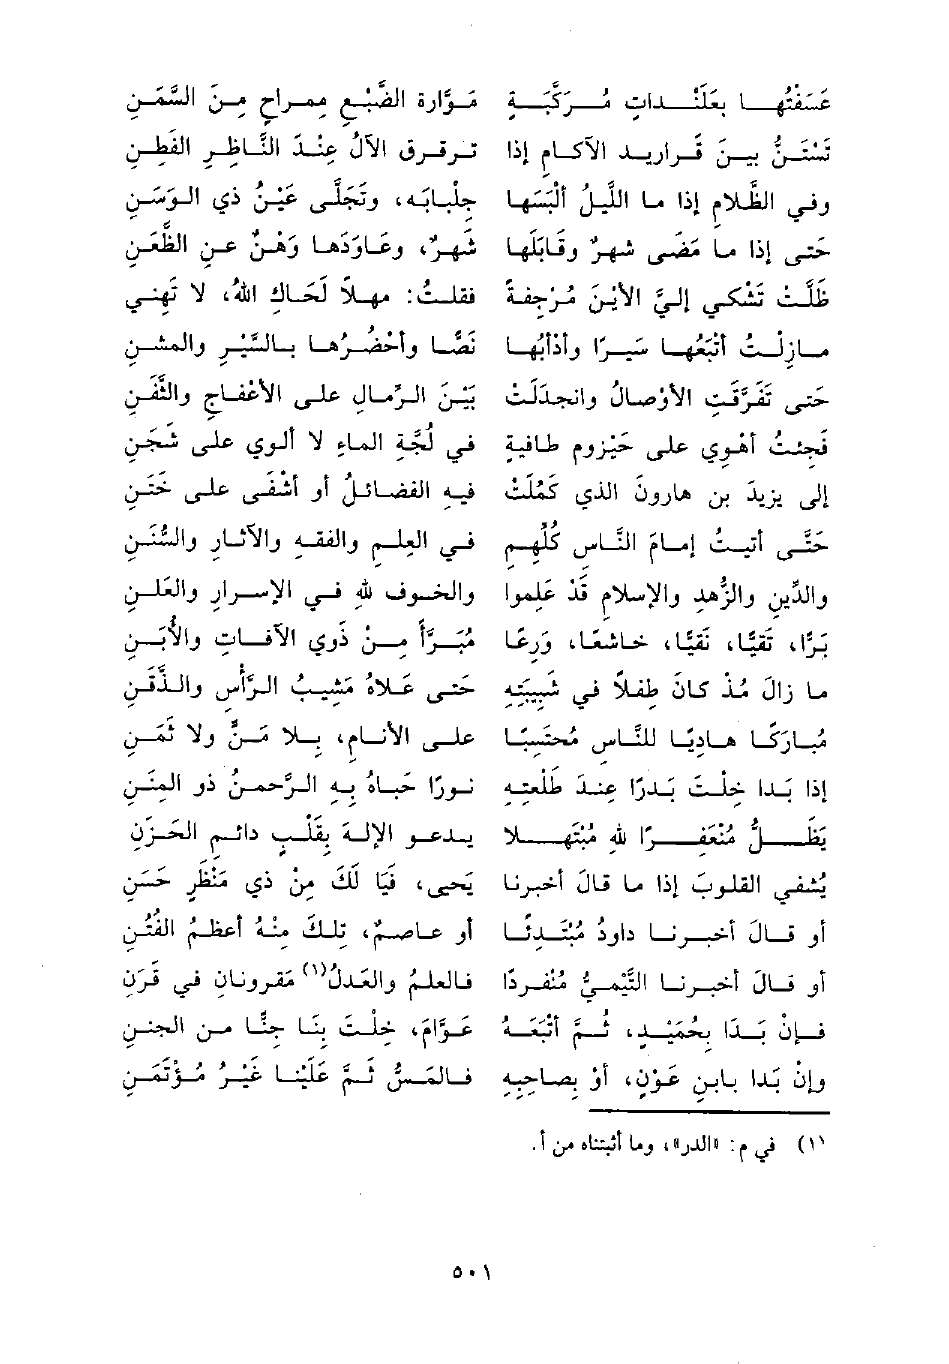 عَسَفْتُهَا بِعَلَنْــدَاتٍ مُــزَكَّــةٍ مَــوَّارَةِ الضَّبْــعِ مِمْــرَاحٍ مِــنَ السِّمَــنِ
تَسْتَــنُّ بيــن قَــرَادِيــدِ الآكَــامِ إِذَا تَــرَقْــرَقَ الآلُ عِنْــدَ النَّــاظِــرِ الفَطِــنِ
وفي الظَّلامِ إِذَا ما اللَّيْلُ أَلْبَسَهَا جِلْبَابَه، وتَجَلَّى عَيْنُ ذي الوَسَنِ
حَتى إِذَا ما مَضَى شَهْرٌ وقَابَلَهَا شَهْرٌ، وعَاوَدَهَا وَهْنٌ عن الظَّعَنِ
ظَلَّتْ تَشَكَّى إِليَّ الأَيْنَ مُرْجِفَةً فقلتُ: مهلاً لَحَاكِ الله، لا تَهِنِي
مــازِلْــتُ أُتْبِعُهــا سَيْــراً وأُدْئِبُهَــا نَصًّــا وأُحْضِــرُهــا بــالسَّيْــرِ والمشــنِ
حتى تَفَرَّقَتِ الأَوْصالُ وانْجَدَلَتْ بَيْــنَ الــرِّمَــالِ علــى الأَعْفَــاجِ والثَّفَــنِ
فجئــتُ أَهْــوِي علــى حَيْــزُومِ طَــافِيَةٍ فــي لُجَّةِ المــاءِ لا أُلْوِي علــى شَجَــنِ
إلى يزيدَ بن هارونَ الذي كَمُلَتْ فيــه الفضــائــلُ أو أَشْفَــى علــى خَتَــنِ
حَتَّــى أتيــتُ إمــامَ النَّــاسِ كُلِّهــم فــي العِلــمِ والفقــه والآثَــارِ والسُّنَــنِ
والدِّينِ والزُّهْدِ والإِسلامِ قَدْ عَلِموا والخــوفِ لله فــي الإســرارِ والعَلَــنِ
بَرًّا، تَقِيًّا، نَقِيًّا، خاشِعًا، وَرِعًا مُبَــرَّأً مِــنْ ذَوِي الآفــاتِ والأُبَــنِ
ما زالَ مُذْ كانَ طِفلاً في شَبِيبَتِهِ حَتــى عَــلاَهُ مَشِيــبُ الــرَّأْسِ والــذَّقَــنِ
مُبــارَكــا هــادِيًــا للنَّــاسِ مُحْتَسِبًــا علــى الأنَــامِ، بِــلا مَــنٍّ ولا ثَمَــنِ
إِذَا بَــدَا خِلْــتَ بَــدْرًا عِنْــدَ طَلْعَتِــه نــورًا حَبَــاهُ بــه الــرَّحْمــنُ ذو المِنَــنِ
يَظَــلُّ مُنْعَفِــرًا لله مُبْتَهِــلاً يــدعــو الإِلــهَ بِقَلْــبٍ دائــمِ الحَــزَنِ
يَشْفِــي القلــوبَ إِذَا مــا قــالَ أخبــرنــا يَحْيى، فَيَا لَكَ مِنْ ذي مَنْظَرٍ حَسَنِ
أو قــالَ أخبــرنــا داودُ مُبْتَــدِئًــا أو عــاصِــمٌ، تِلْــكَ مِنْــهُ أَعْظَــمُ الفِتَــنِ
أو قــالَ أخبــرنــا التَّيْمِــيُّ مُنْفَــرِدًا فــالعلــمُ والعَــدْلُ(١) مَقْــرونــانِ فــي قَــرَنِ
فــإن بَــدَا بِحُمَيْــدٍ، ثُــمَّ أَتْبَعَــهُ عَــوَّامٌ، خِلْــتَ بِنَــا جِنًّــا مــن الجِنَــنِ
وإن بَدَا بابنِ عَوْنٍ، أَوْ بِصاحِبِهِ فــالمَــسُّ ثُــمَّ عَلَيْنَــا غَيْــرُ مُــؤْتَمَــنِ
(١) في م: «الدر»، وما أثبتناه من أ.
٥٠١